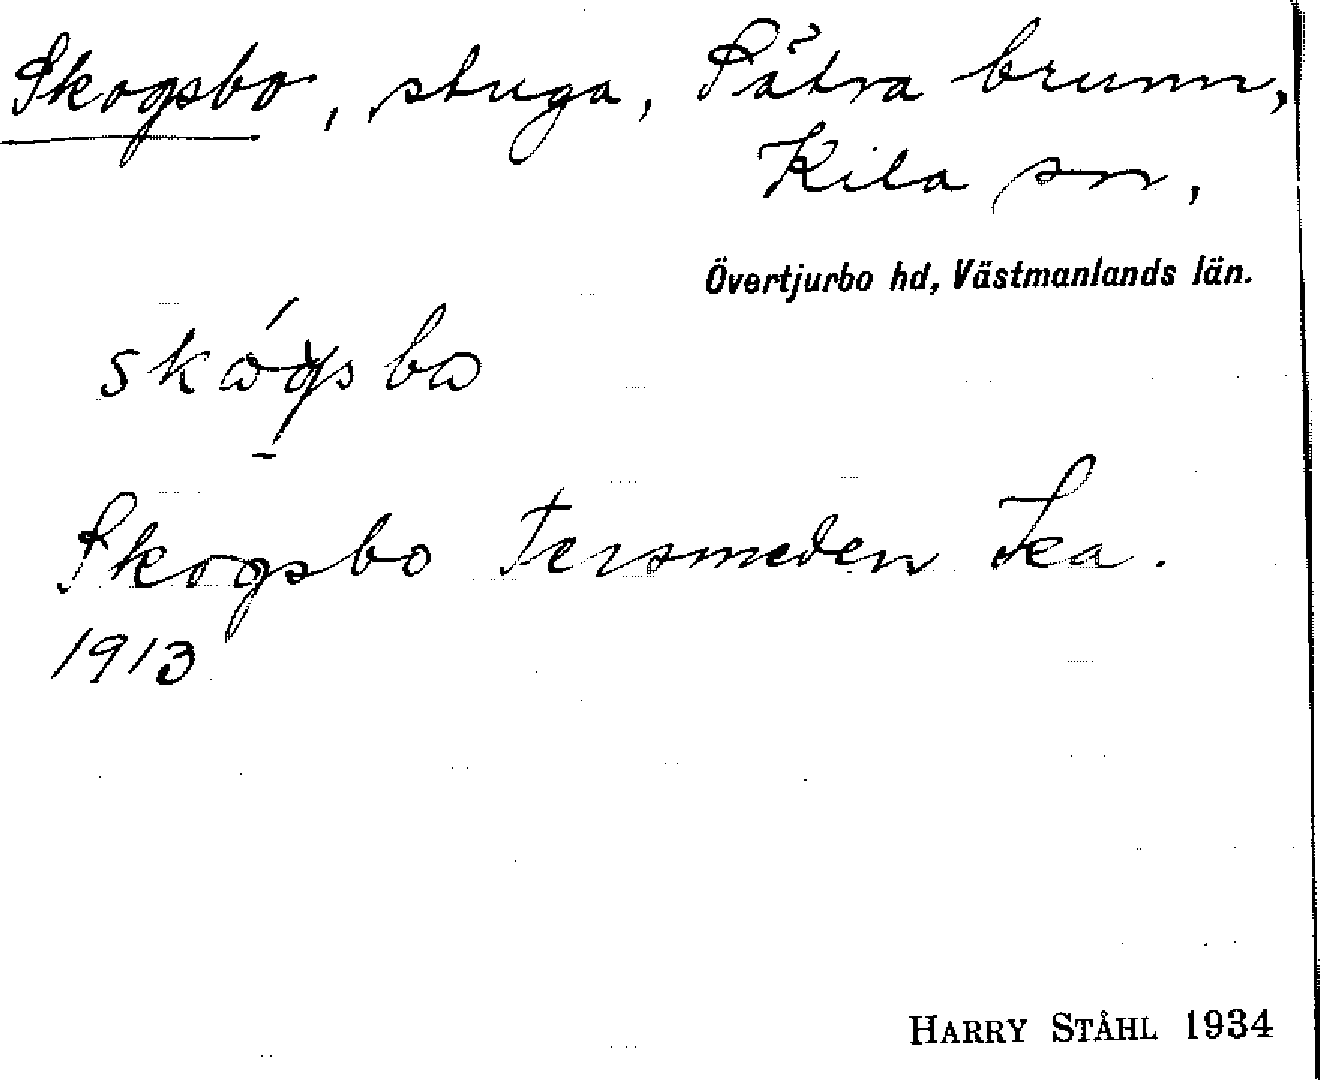 Skogsbo, stuga, Sätra brunn,
Kila sn,
Övertjurbo hd, Västmanlands län.
skógsbo
Skogsbo Tersmeden Ska.
1913
HARRY STÅHL 1934